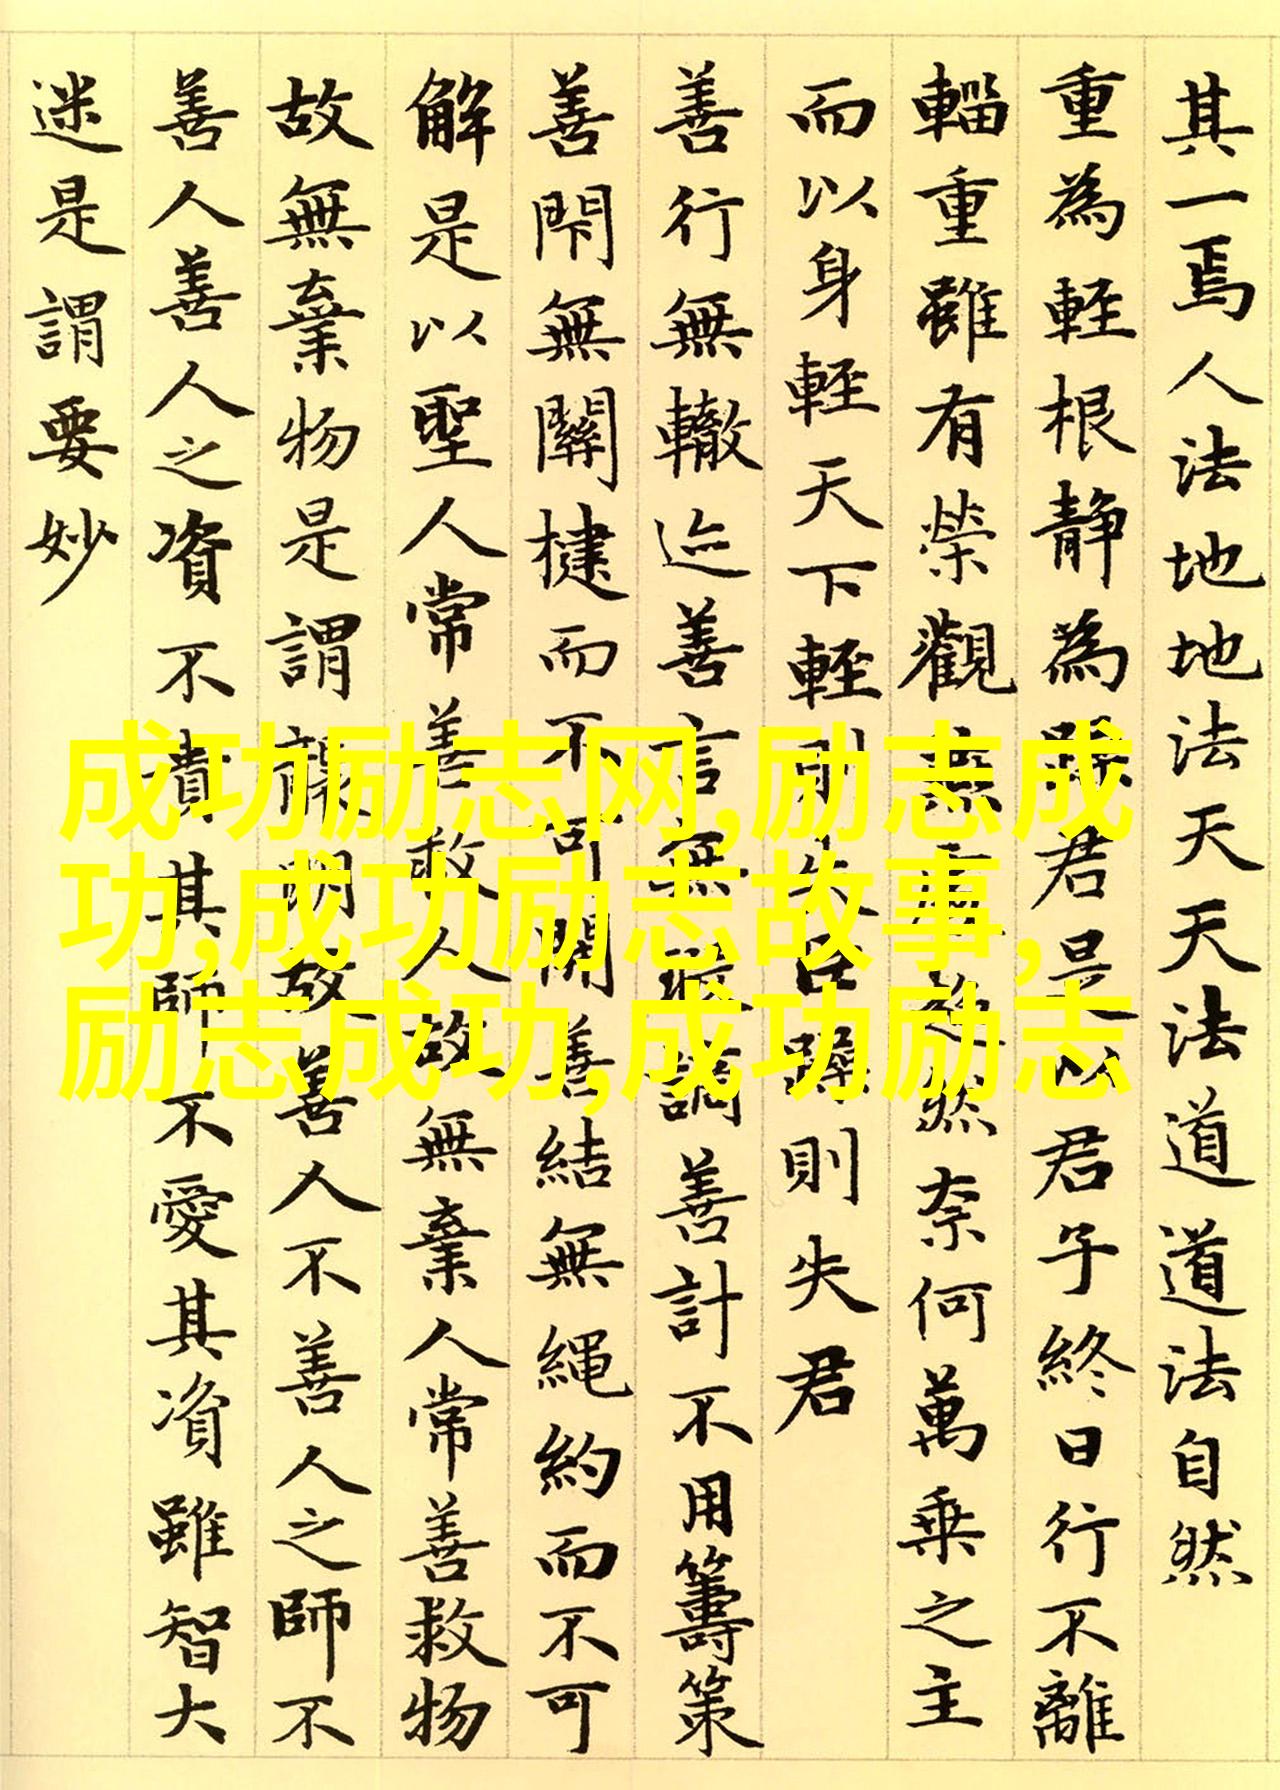 其一焉人法地地法天天法道道法自然
重為輕根静為躁君是以君子終日行不離
輜重雖有榮觀燕處超然奈何萬乘之主
而以身輕天下輕則失臣躁則失君
善行無轍迹善言無瑕謫善計不用籌策
善閇無關楗而不可開善結無繩約而不可
解是以聖人常善救人故無棄人常善救物
故無棄物是謂襲明故善人不善人之師不
善人善人之資不貴其師不愛其資雖智大
迷是謂要妙
成功励志网,励志成
功,成功励志故事,
励志成功,成功励志